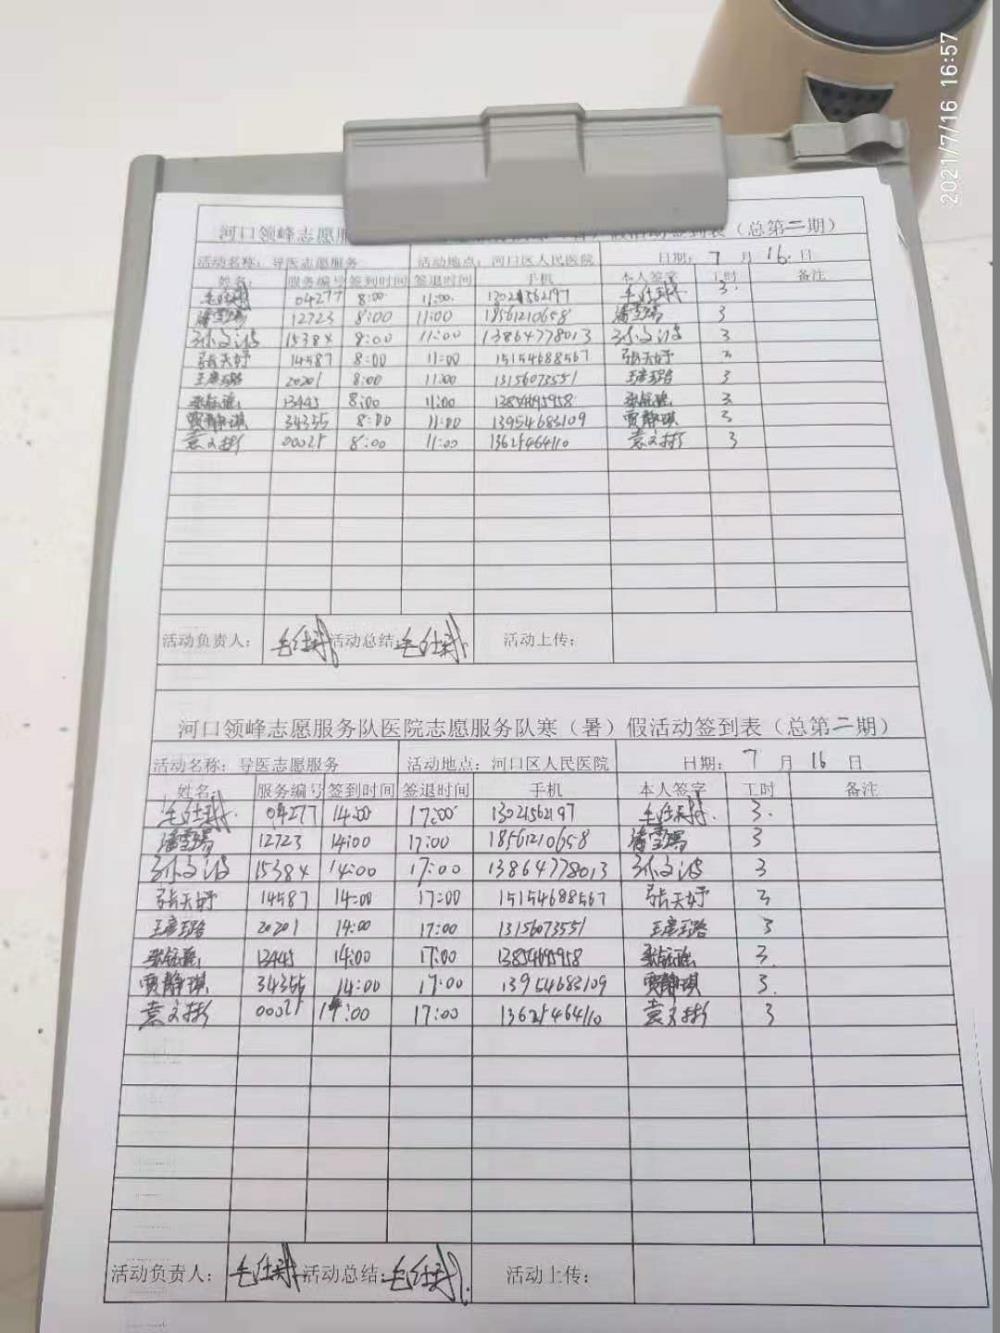 2021/7/16 16:57
河口领峰志愿服 假活动签到表（总第二期）
活动名称：导医志愿服务 活动地点：河口区人民医院 日期：7月16日
姓名： 服务编号 签到时间 签退时间 手机 本人签字 工时 备注
04277 8:00 11:00 13021562197 3
潘雪瑞 12723 8:00 11:00 18561210658 潘雪瑞 3
孙文波 15384 8:00 11:00 13864778013 孙文波 3
张天妤 14587 8:00 11:00 15154688567 张天妤 3
20201 8:00 11:00 13156073551 3
13445 8:00 11:00 3
贾静琪 34355 8:00 11:00 13954683109 贾静琪 3
袁文彬 00021 8:00 11:00 袁文彬 3
活动负责人： 活动总结： 活动上传：
河口领峰志愿服务队医院志愿服务队寒（暑）假活动签到表（总第二期）
活动名称：导医志愿服务 活动地点：河口区人民医院 日期：7月16日
姓名： 服务编号 签到时间 签退时间 手机 本人签字 工时 备注
04277 14:00 17:00 13021562197 3
潘雪瑞 12723 14:00 17:00 18561210658 潘雪瑞 3
孙文波 15384 14:00 17:00 13864778013 孙文波 3
张天妤 14587 14:00 17:00 15154688567 张天妤 3
20201 14:00 17:00 13156073551 3
13445 14:00 17:00 3
贾静琪 34355 14:00 17:00 13954683109 贾静琪 3
袁文彬 00021 14:00 17:00 袁文彬 3
活动负责人： 活动总结： 活动上传：